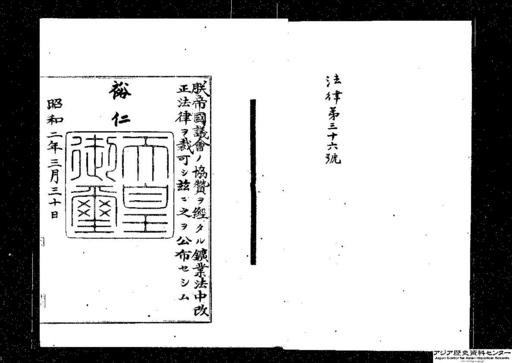 法律第三十六號
朕帝國議會ノ協贊ヲ經タル鑛業法中改
正法律ヲ裁可シ玆ニ之ヲ公布セシム
裕仁
天皇
御璽
昭和二年三月三十日
アジア歴史資料センター
Japan Center for Asian Historical Records